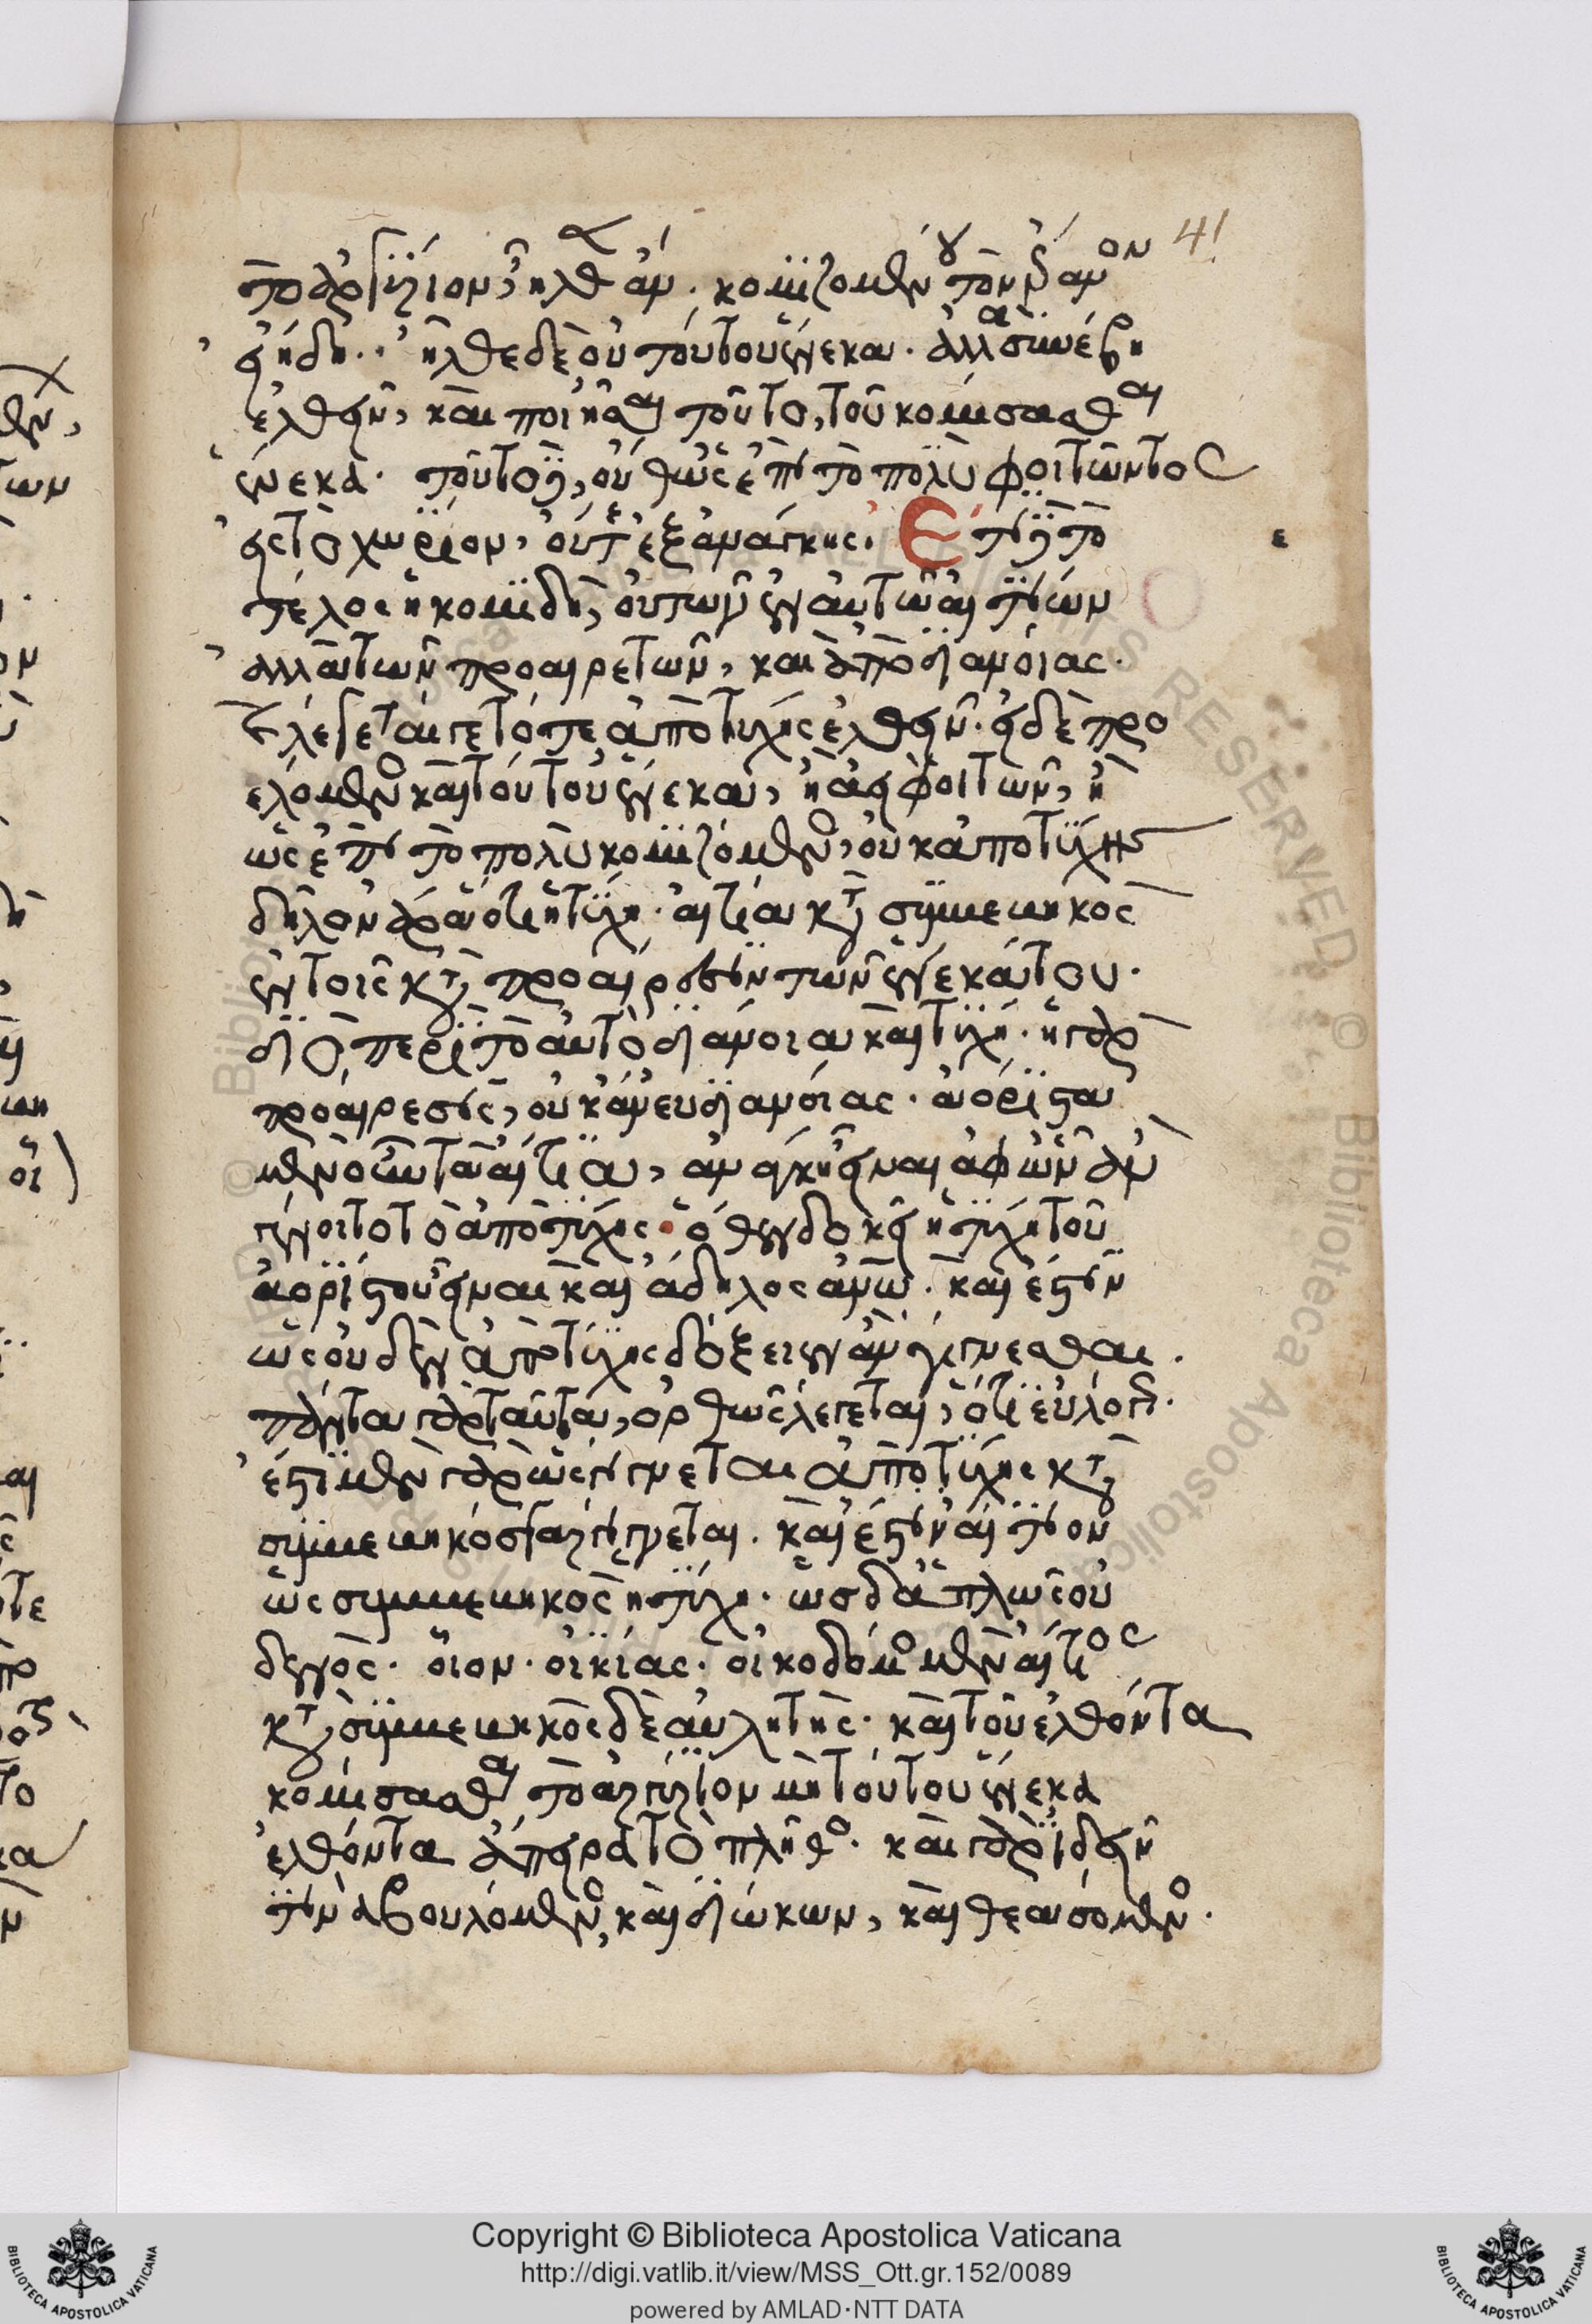 τὸ ἀργύριον, ἦλθεν ἄν. κομιζομένου τὸν ἔρανον
εἰ ᾔδει. ἦλθε δὲ οὐ τούτου ἕνεκα. ἀλλὰ συνέβη
ἐλθεῖν, καὶ ποιῆσαι τοῦτο, τοῦ κομίσασθαι
ἕνεκα. τοῦτο δὲ, οὔθ' ὡς ἐπὶ τὸ πολὺ φοιτῶντος
εἰς τὸ χωρίον, οὔτε ἐξ ἀνάγκης. Ἔστι δὲ τὸ
τέλος ἡ κομιδὴ, οὐ τῶν ἐν αὐτῷ αἰτίων
ἀλλὰ τῶν προαιρετῶν, καὶ ἀπὸ διανοίας.
καὶ λέγεταί γε τότε ἀπὸ τύχης ἐλθεῖν. εἰ δὲ προ
ελόμενος καὶ τούτου ἕνεκα, ἢ ἀεὶ φοιτῶν, ἢ
ὡς ἐπὶ τὸ πολὺ κομιζόμενος, οὐκ ἀπὸ τύχης
δῆλον ἄρα ὅτι ἡ τύχη. αἰτία κατὰ συμβεβηκὸς
ἐν τοῖς κατὰ προαίρεσιν τῶν ἕνεκά του.
διὸ περὶ τὸ αὐτὸ διάνοια καὶ τύχη. ἡ γὰρ
προαίρεσις, οὐκ ἄνευ διανοίας. ἀόριστα
μὲν οὖν τὰ αἴτια, ἀνάγκη εἶναι ἀφ' ὧν ἂν
γένοιτο τὸ ἀπὸ τύχης. ὅθεν δοκεῖ ἡ τύχη τοῦ
ἀορίστου εἶναι καὶ ἄδηλος ἀνθρώπῳ. καὶ ἔστιν
ὡς οὐδὲν ἀπὸ τύχης δόξειεν ἂν γίγνεσθαι.
πάντα γὰρ ταῦτα, ὀρθῶς λέγεται, ὅτι εὐλόγως.
ἔστι μὲν γὰρ ὡς γίγνεται ἀπὸ τύχης κατὰ
συμβεβηκὸς γὰρ γίγνεται. καὶ ἔστιν αἴτιον
ὡς συμβεβηκὸς ἡ τύχη. ὡς δ' ἁπλῶς οὐ
δενός. οἷον. οἰκίας. οἰκοδόμος μὲν αἴτιος
κατὰ συμβεβηκὸς δὲ αὐλητής. καὶ τοῦ ἐλθόντα
κομίσασθαι τὸ ἀργύριον μὴ τούτου ἕνεκα
ἐλθόντα ἄπειρα τὸ πλῆθος. καὶ γὰρ ἰδεῖν
τινὰ βουλόμενος, καὶ διώκων, καὶ θεασόμενος.
41
ε
Copyright © Biblioteca Apostolica Vaticana
http://digi.vatlib.it/view/MSS_Ott.gr.152/0089
powered by AMLAD·NTT DATA
BIBLIOTECA APOSTOLICA VATICANA
BIBLIOTECA APOSTOLICA VATICANA